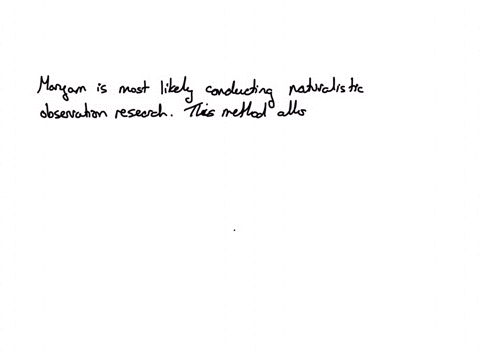 Maryam is most likely conducting naturalistic
observation research. This method allo